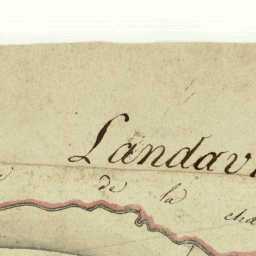 Landav
de la cha